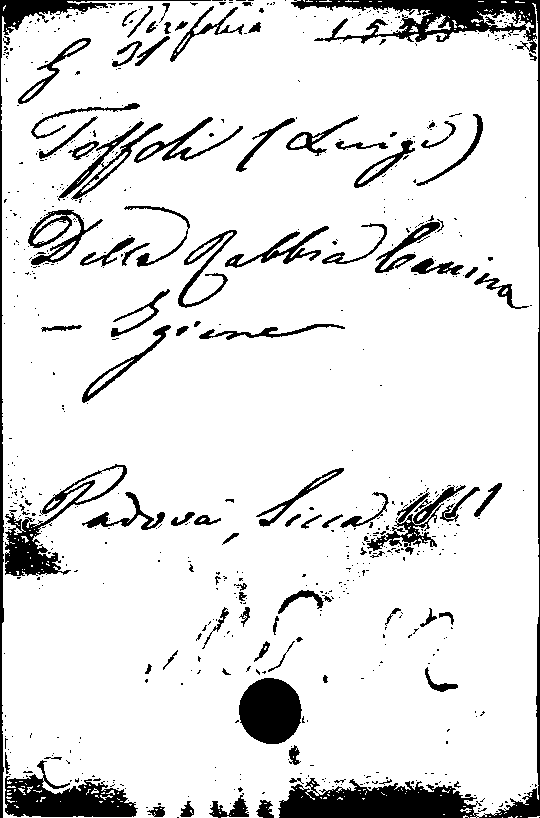 Idrofobia
G. 31
Toffoli (Luigi)
Della Rabbia Canina
— Igiene
Padova, Sicca 1811
C